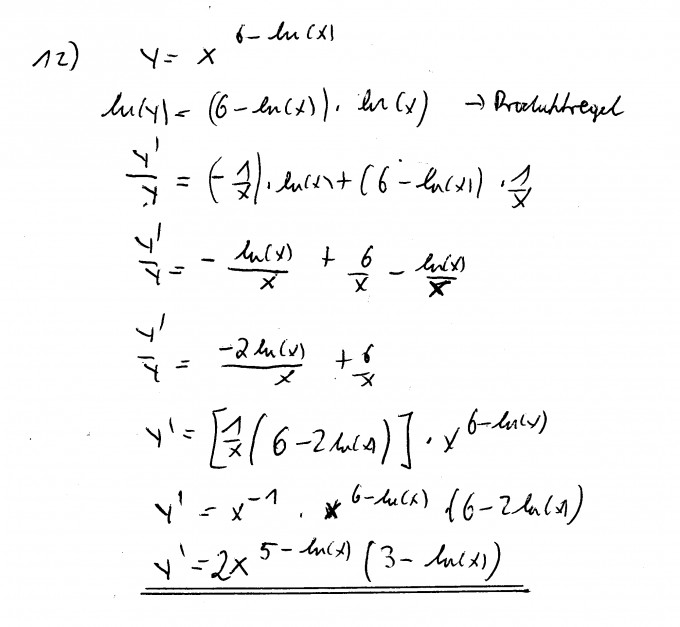 12) y = x^(6 - ln(x))
ln(y) = (6 - ln(x)) · ln(x) → Produktregel
y'/y = (-1/x) · ln(x) + (6 - ln(x)) · 1/x
y'/y = - ln(x)/x + 6/x - ln(x)/x
y'/y = -2 ln(x)/x + 6/x
y' = [1/x (6 - 2 ln(x))] · x^(6 - ln(x))
y' = x^(-1) · x^(6 - ln(x)) (6 - 2 ln(x))
y' = 2x^(5 - ln(x)) (3 - ln(x))